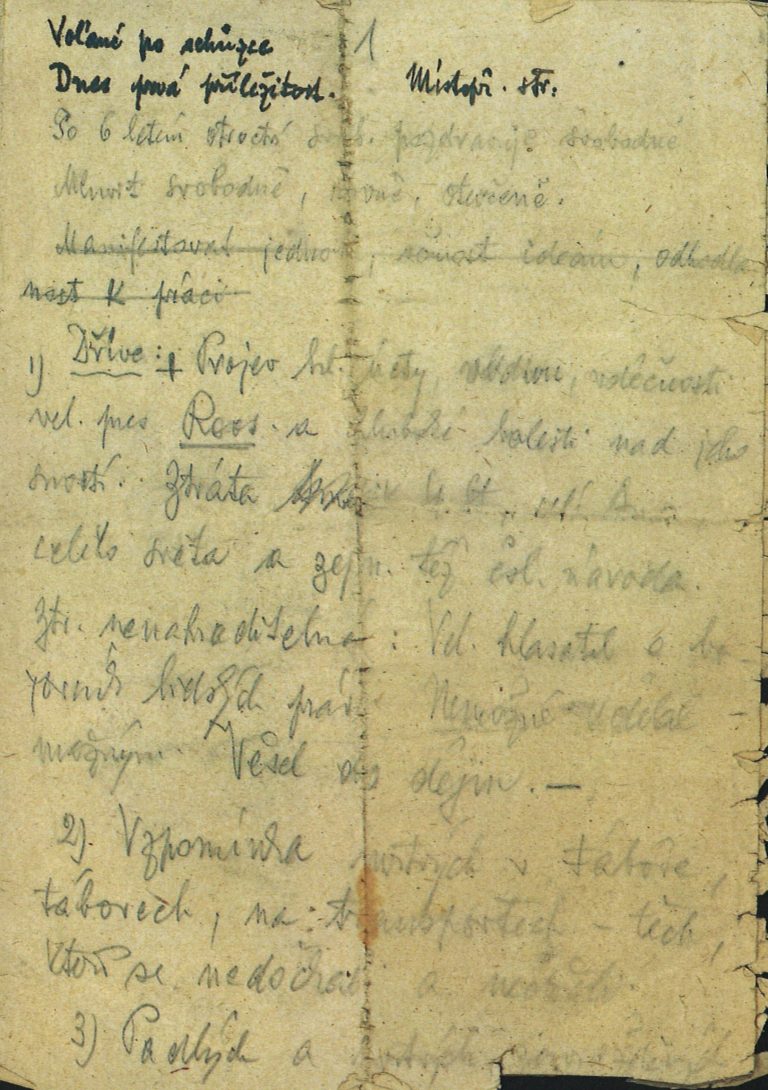 Volané po schůzce 1
Dnes prvá příležitost. Místopř. str.
Po 6 letém otroctví pozdravuje svobodné
Mluvit svobodně, rovně, otevřeně.
Manifestovat jednotu, věrnost ideám, odhodla
nost k práci
1) Dříve: + Projev hl. úcty, obdivu, vděčnosti
vel. pres Roos. a hluboké bolesti nad jeho
smrtí. Ztráta
celého světa a zejm. též čsl. národa.
Ztr. nenahraditelná: Vel. hlasatel a bo-
jovník lidských práv. Nemožné udělal
možným. Vešel do dějin. —
2). Vzpomínka mrtvých v táboře,
táborech, na transportech – těch,
kteří se nedočkali a
3) Padlých a